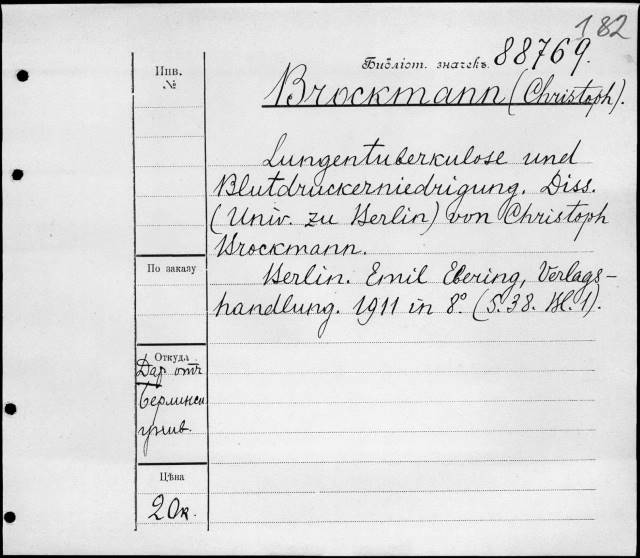 182
Библіот. значекъ 88769.
Инв.
№
Brockmann (Christoph).
Lungentuberkulose und
Blutdruckerniedrigung. Diss.
(Univ. zu Berlin) von Christoph
Brockmann.
Berlin. Emil Ebering, Verlags-
handlung. 1911 in 8° (S. 38. Bl. 1).
По заказу
Откуда
Дар отъ
Берлинск
унив.
Цѣна
20к.